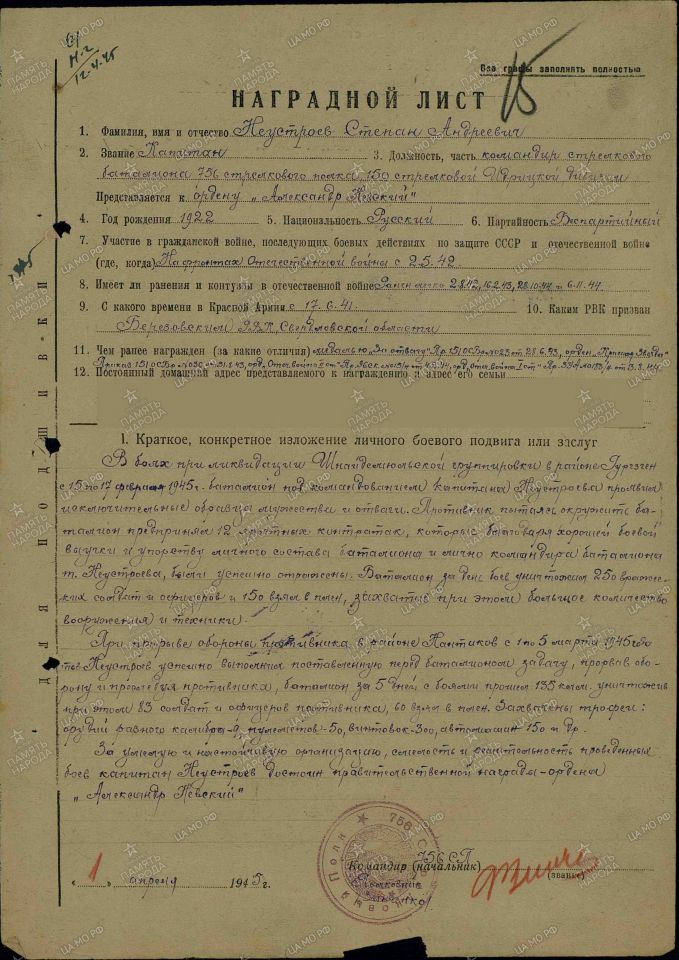 Н-2
12.4.45
Все графы заполнять полностью
НАГРАДНОЙ ЛИСТ
1. Фамилия, имя и отчество Неустроев Степан Андреевич
2. Звание Капитан 3. Должность, часть командир стрелкового
баталиона 756 стрелкового полка, 150 стрелковой Идрицкой дивизии
Представляется к ордену „Александр Невский"
4. Год рождения 1922 5. Национальность Русский 6. Партийность Беспартийный
7. Участие в гражданской войне, последующих боевых действиях по защите СССР и отечественной войне
(где, когда) На фронтах Отечественной войны с 2.5.42
8. Имеет ли ранения и контузии в отечественной войне Ранен легко 2.8.42, 16.2.43, 28.10.44 и 6.11.44
9. С какого времени в Красной Армии с 17.6.41 10. Каким РВК призван
Березовским РВК, Свердловской области
11. Чем ранее награжден (за какие отличия) медалью „За отвагу" Пр. 151 ОСБр №023 от 28.6.43, орден „Красная Звезда"
Приказ 151 ОСБр №030 от 31.8.43, орд. Отеч. войны II ст. орд. Отеч. война I ст"
12. Постоянный домашний адрес представляемого к награждению и адрес его семьи
I. Краткое, конкретное изложение личного боевого подвига или заслуг
В боях при ликвидации Шнайдемюльской группировки в районе
с 15 по 17 февраля 1945г. баталион под командованием капитана Неустроева проявил
исключительные образцы мужества и отваги. Противник пытаясь окружить ба-
талион предпринял 12 контратак, которые благодаря хорошей боевой
выучки и упорству личного состава баталиона и лично командира баталиона
т. Неустроева, были успешно отражены. Баталион за день боев уничтожил 250 вражес-
ких солдат и офицеров и 150 взял в плен, захватив при этом большое количество
вооружения и техники.
При прорыве обороны противника в районе с 1 по 5 марта 1945 года
тов Неустроев успешно выполнил поставленную перед баталионом задачу, прорвав обо-
рону и преследуя противника, баталион за 5 дней с боями прошел 135 клм. уничтожив
при этом 83 солдат и офицеров противника, взял в плен. Захвачены трофеи:
орудий разного калибра-9, пулеметов-50, винтовок-300, автомашин 150 и др.
За умелую и настойчивую организацию, смелость и решительность проведенных
боев капитан Неустроев достоин правительственной награды-ордена
„Александр Невский"
756 СП
Командир (начальник)
Полковник
Зинченко
(звание)
„1" апреля 1945г.
ДЛЯ ПОДШИВКИ
756
Полк
ПАМЯТЬ НАРОДА
ЦАМО.РФ